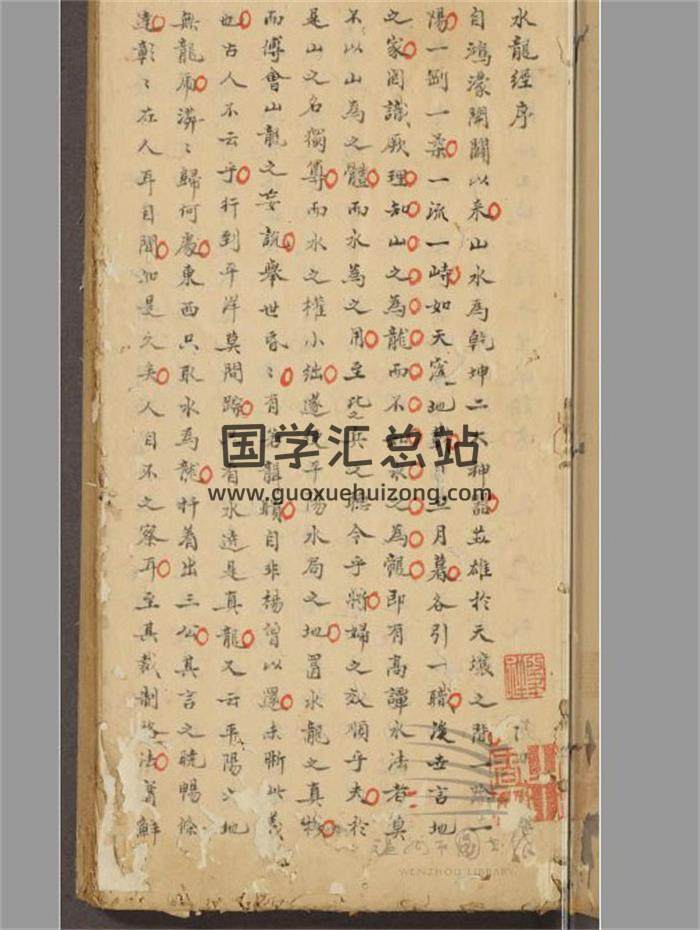 水龍經序
自鴻濛開闢以来山水為乾坤二大神器並雄於天壤之間一陰一
陽一剛一柔一流一峙如天 地 月暮各引一職後世言地
之家罔識厥理知山之為龍而不知水之為龍即有高譚水法者莫
不以山為之體而水為之用至比之兵之聽令乎將婦之效順乎夫於
是山之名獨尊而水之權小絀遂使平陽水局之地置水龍之真
而傅會山龍之妄說舉世昏〻有若聾瞶自非楊曾以還未晰此義
也古人不云乎行到平洋莫問踪只看水遶是真龍又云平陽大地
無龍虎漭〻歸何處東西只取水為龍扦着出三公其言之曉暢條
達彰〻在人耳目間如是久矣人自不之察耳至其裁制 法 鮮
国学汇总站
www.guoxuehuizong.com
WENZHOU LIBRARY